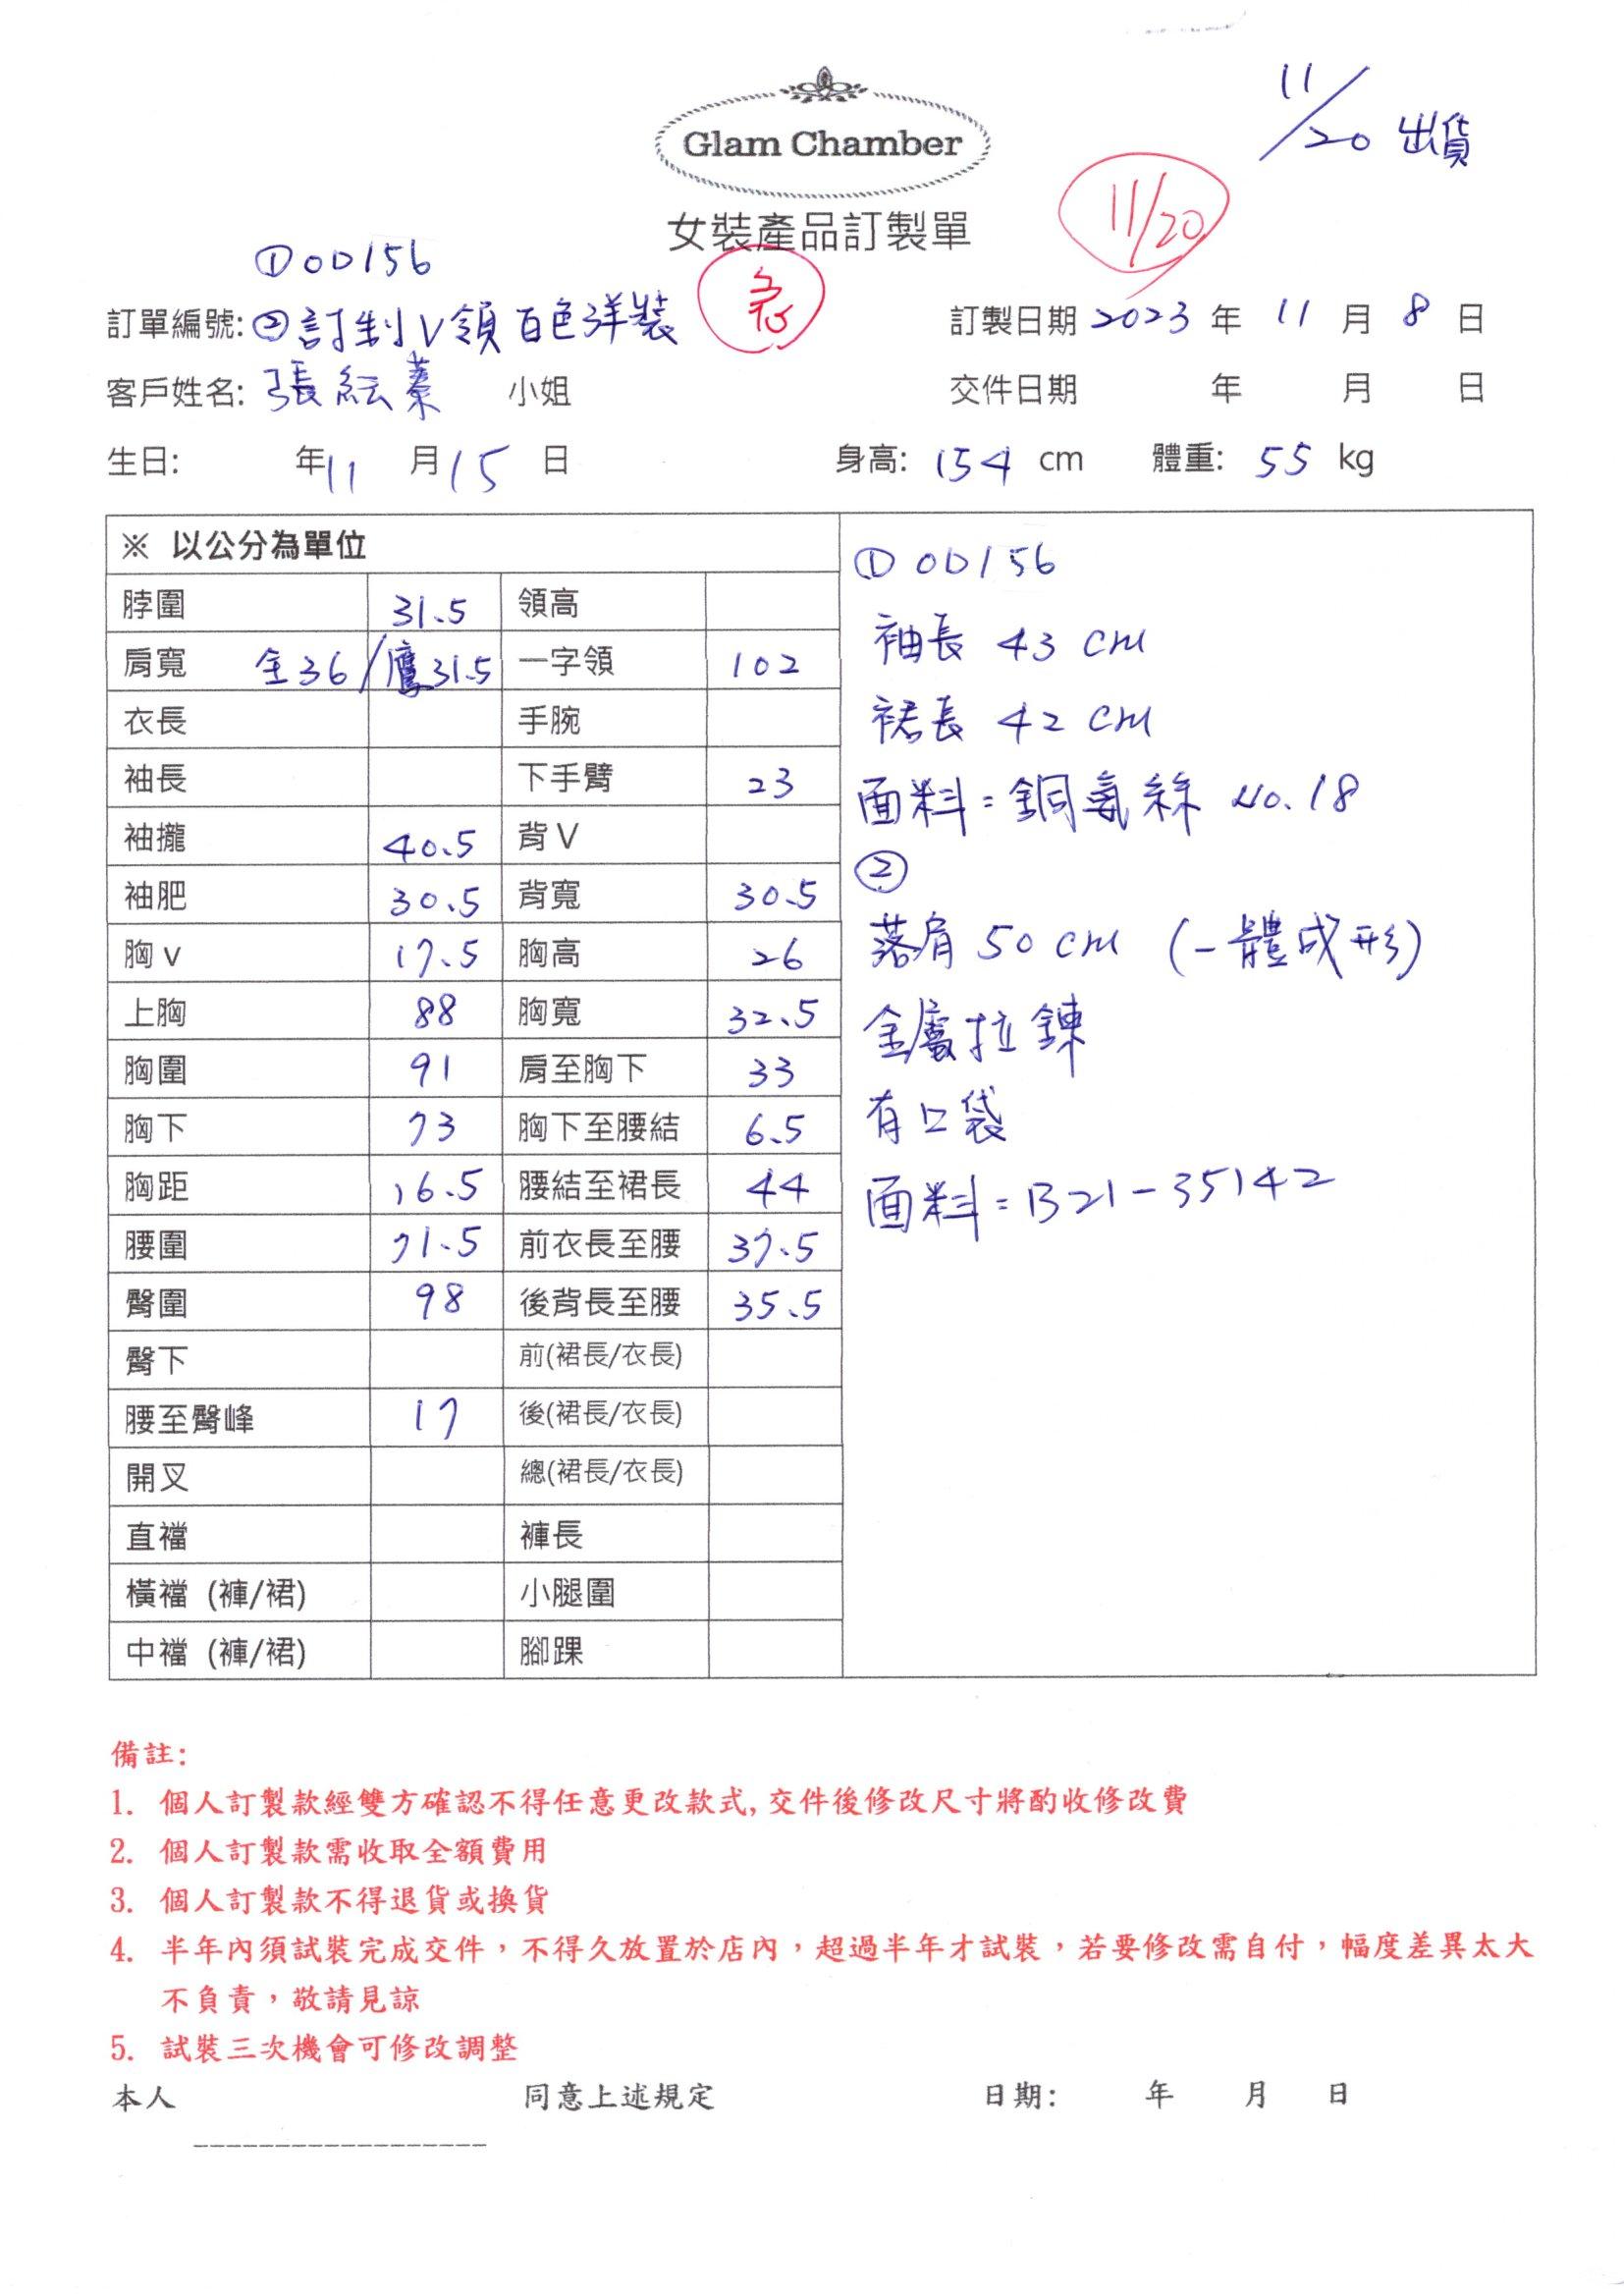 11/20 出貨
Glam Chamber
11/20
女裝產品訂製單
①OD156
急
訂單編號: ②訂制V領白色洋裝 訂製日期 2023 年 11 月 8 日
客戶姓名: 張紜蓁 小姐 交件日期 年 月 日
生日: 年 11 月 15 日 身高: 154 cm 體重: 55 kg
※ 以公分為單位
脖圍 31.5 領高
肩寬 全36/鷹31.5 一字領 102
衣長 手腕
袖長 下手臂 23
袖攏 40.5 背V
袖肥 30.5 背寬 30.5
胸v 17.5 胸高 26
上胸 88 胸寬 32.5
胸圍 91 肩至胸下 33
胸下 73 胸下至腰結 6.5
胸距 16.5 腰結至裙長 44
腰圍 71.5 前衣長至腰 37.5
臀圍 98 後背長至腰 35.5
臀下 前(裙長/衣長)
腰至臀峰 17 後(裙長/衣長)
開叉 總(裙長/衣長)
直襠 褲長
橫襠 (褲/裙) 小腿圍
中襠 (褲/裙) 腳踝
① OD156
袖長 43 cm
裙長 42 cm
面料=銅氨絲 No.18
②
落肩 50 cm (一體成形)
金屬拉鍊
有口袋
面料=B21-35142
備註:
1. 個人訂製款經雙方確認不得任意更改款式,交件後修改尺寸將酌收修改費
2. 個人訂製款需收取全額費用
3. 個人訂製款不得退貨或換貨
4. 半年內須試裝完成交件，不得久放置於店內，超過半年才試裝，若要修改需自付，幅度差異太大
不負責，敬請見諒
5. 試裝三次機會可修改調整
本人 同意上述規定 日期: 年 月 日